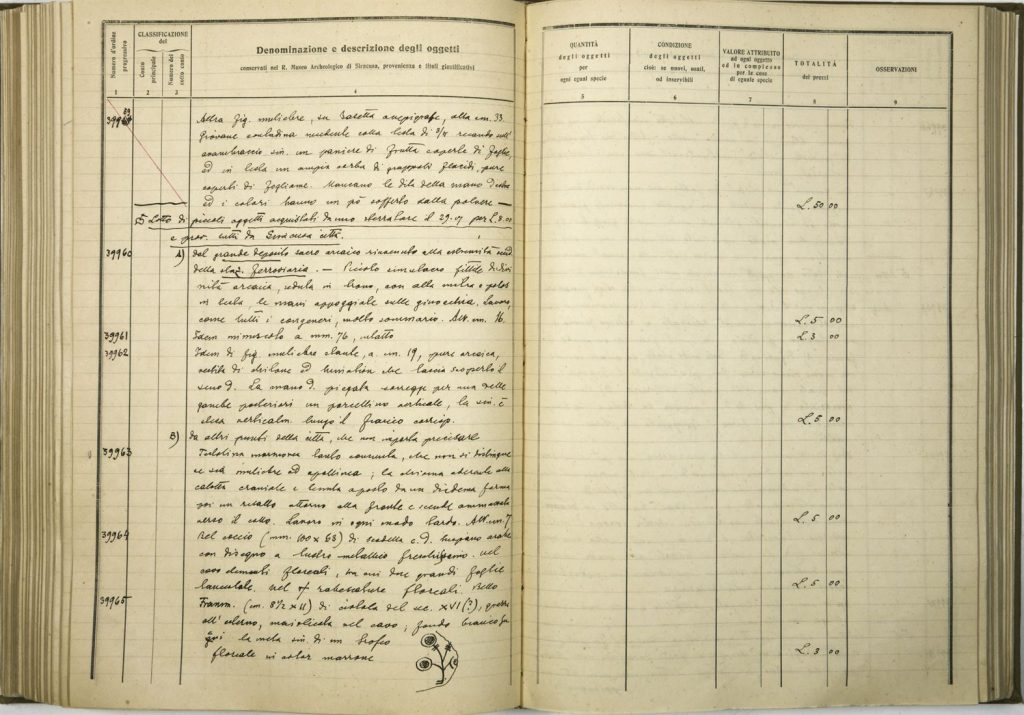 Numero d'ordine progressivo
CLASSIFICAZIONE del
Conto principale
Numero del sotto conto
Denominazione e descrizione degli oggetti
conservati nel R. Museo Archeologico di Siracusa, provenienza e titoli giustificativi
QUANTITÀ degli oggetti per ogni eguale specie
CONDIZIONE degli oggetti cioè: se nuovi, usati, od inservibili
VALORE ATTRIBUITO ad ogni oggetto od in complesso per le cose di eguale specie
TOTALITÀ dei prezzi
OSSERVAZIONI
1 2 3 4 5 6 7 8 9
Altra fig. muliebre, su basetta anepigrafe, alta cm. 33.
Giovane contadina colla testa di 3/4 recando sull'
avambraccio sin. un paniere di frutta coperte di foglie,
ed in testa un ampia di grappoli pure
coperti di fogliame. Mancano le dita della mano destra
ed i colori hanno un pò sofferto dalla polvere — L. 50 00
Lotto di piccoli oggetti acquistati da uno sterratore il 29. per L.
e prov. tutti da Siracusa città.
39960 A) dal grande deposito sacro arcaico rinvenuto alla estremità
della staz. ferroviaria. — Piccolo simulacro fittile di divi
nità arcaica, seduta in trono, con alta mitra o polos
in testa le mani appoggiate sulle ginocchia. Lavoro,
come tutti i congeneri, molto sommario. Alt. cm. 16. L. 5 00
39961 Idem minuscolo a mm. 76, intatto L. 3 00
39962 Idem di fig. muliebre stante, a cm. 19, pure arcaica,
vestita di chitone ed himation che lascia scoperto il
seno d. La mano d. piegata sorregge per una delle
gambe posteriori un porcellino verticale, la sin. è
stesa verticalm. lungo il fianco corrisp. L. 5 00
B) da altri punti della città, che non importa precisare
39963 Testolina marmorea tanto consunta, che non si distingue
se sia muliebre od apollinea; la chioma aderente alla
calotta craniale e tenuta a posto da un diadema forma
poi un risalto attorno alla fronte e scende ammassata
verso il collo. Lavoro in ogni modo tardo. Alt. cm. 7 L. 5 00
39964 Bel coccio (mm. 100 x 68) di scodella c. d. hispano araba
con disegno a lustro metallico freschissimo. Nel
cavo elementi floreali, tra cui due grandi foglie
lanceolate. Nel rabescature floreali. Bello L. 5 00
39965 Framm. (cm. 8 1/2 x 11) di ciotola del sec. XVI (?),
all'esterno, maiolicata nel cavo; fondo bianco
la metà sin. di un trofeo
floreale in color marrone L. 3 00